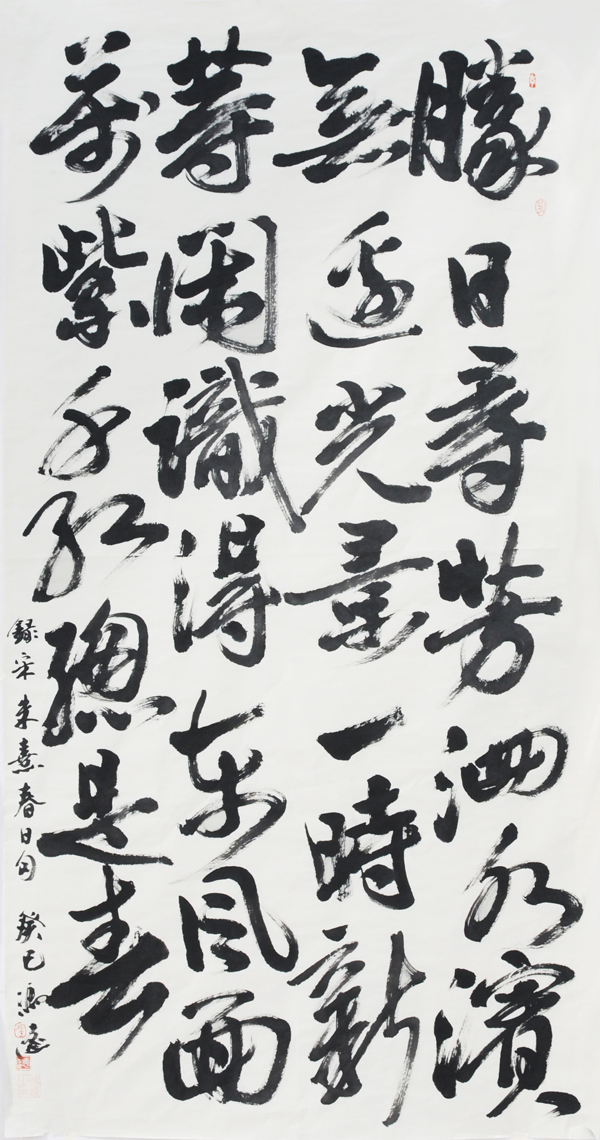 勝日尋芳泗水濱
無邊光景一時新
等閑識得東風面
萬紫千紅總是春
錄宋朱熹春日句 癸巳